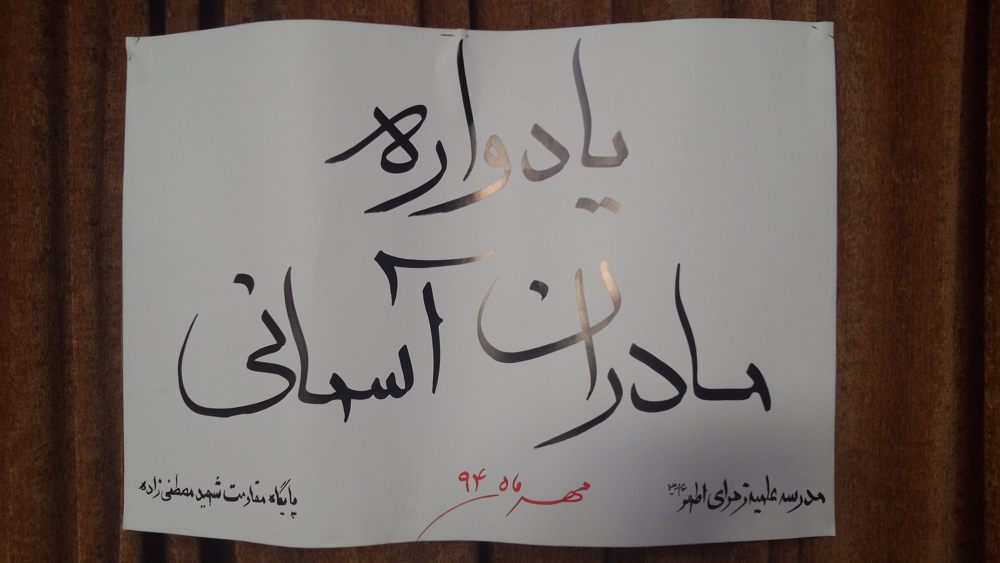 یادواره
مادران آسمانی
مدرسه علمیه زهرای اطهر
مهر ماه ۹۴
پایگاه مقاومت شهید مصطفی زاده